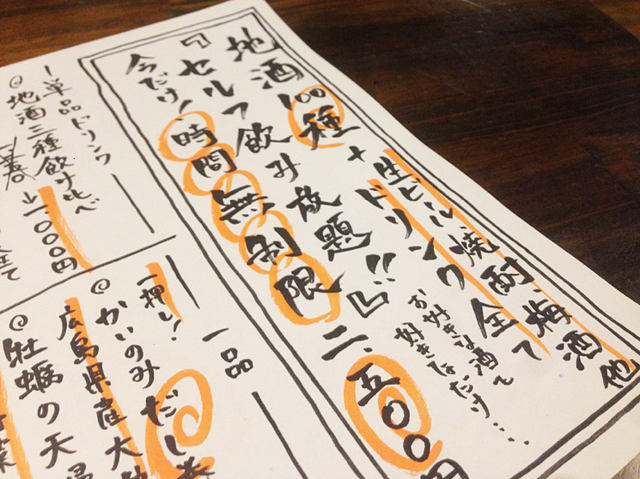 地酒100種+生ビール焼酎・梅酒他
ドリンク全て
『セルフ飲み放題』二、五〇〇円
お好きな酒で
好きなだけ…
今だけ!時間無制限
ー単品ドリンクー
◎地酒三種飲み比べ
一、〇〇〇円
全て
一品
一押し!
◎かいのみだし巻
広島県産大
◎牡蠣の天婦